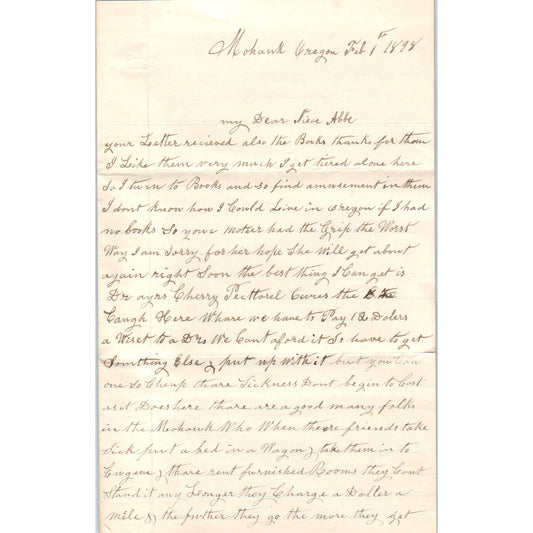 Mohawk Oregon Feb 1st 1898
my Dear Niece Abbe
your Letter recieved also the Books thanks for tham
I Like them very much I get tired alone here
So I turn to Books and so find amusement in them
I dont know how I Could Live in Oregon if I had
no books So your Mother had the Grip the Worst
Way I am Sorry for her hope She Will get about
again right Soon the best thing I Can get is
Dr ayrs Cherry Pecttorel Cures the
Caugh Here Whare we have to Pay 12 Dolers
a Viset to a Drs We Cant aford it So have to get
Somthing Else & put up With it but you Can
one So Cheap thare Sickness Dont begin to Cost
as it Does here thare are a good many folks
in the Mohawk Who When there friends take
Sick put a bed in a Wagon & take them in to
Eugene & thare rent furnished Rooms they Cant
Stand it any Longer they Charge a Doller a
Mile & the further they go the more they get